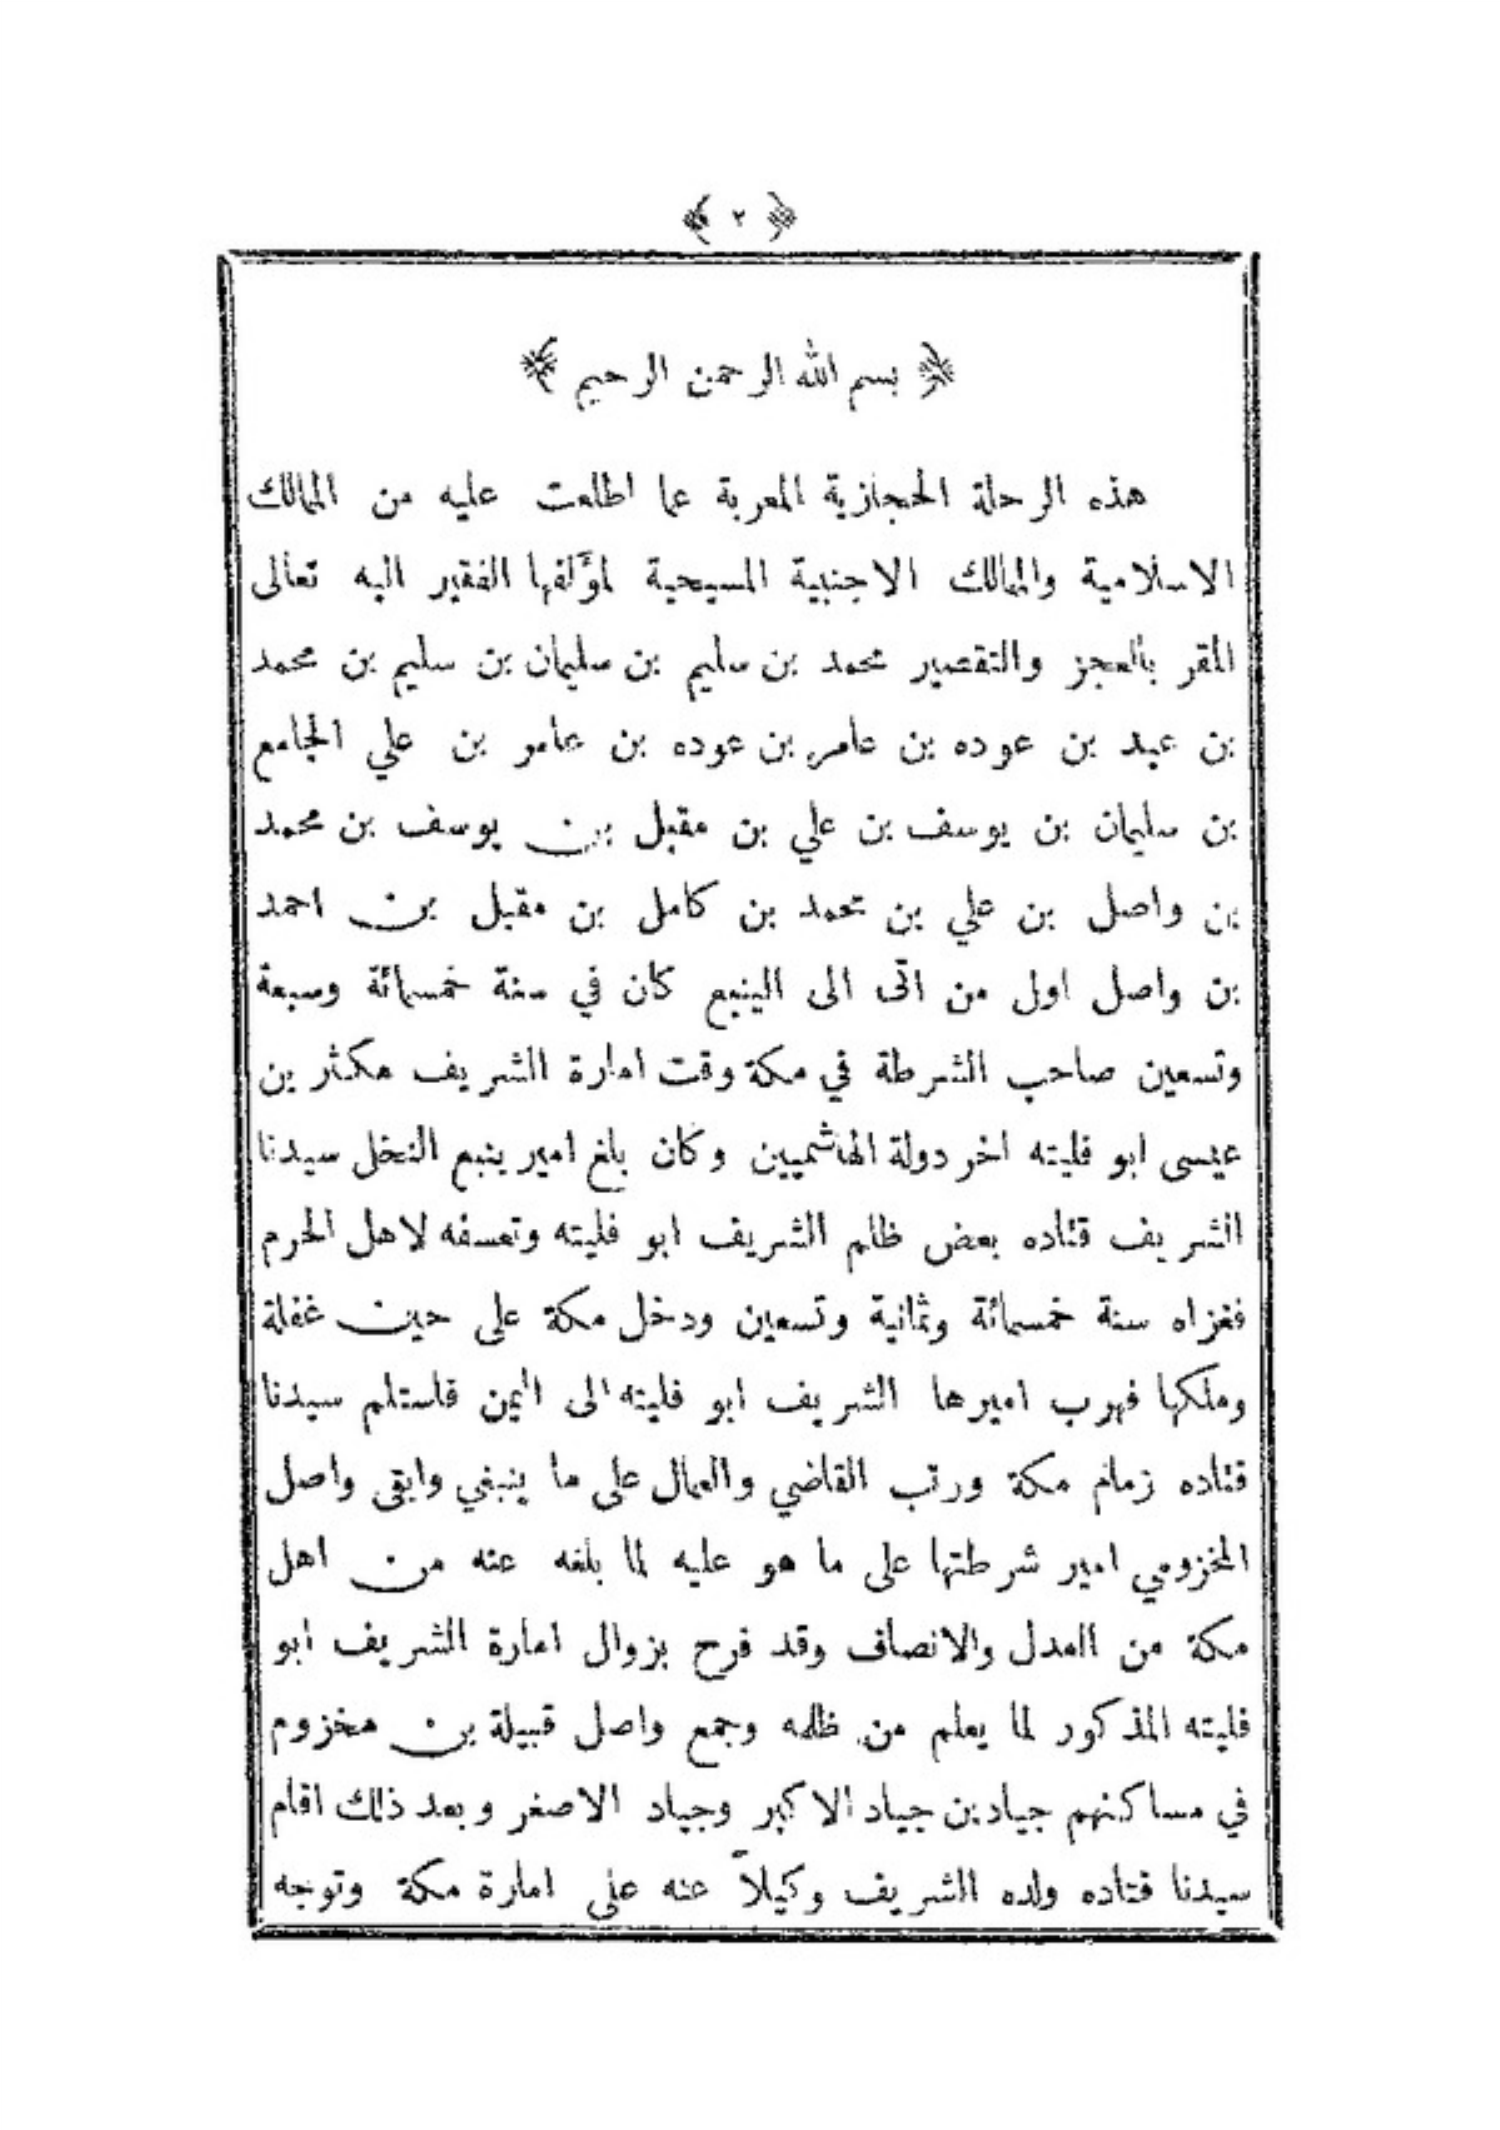 ﴿ ٢ ﴾
﴿ بسم الله الرحمن الرحيم ﴾
هذه الرحلة الحجازية المعربة عما اطلعت عليه من الممالك
الاسلامية والممالك الاجنبية المسيحية لمؤَلفها الفقير اليه تعالى
المقر بالعجز والتقصير محمد بن سليم بن سليمان بن سليم بن محمد
بن عيد بن عوده بن عامر بن عوده بن عامر بن علي الجامع
بن سليمان بن يوسف بن علي بن مقبل بن يوسف بن محمد
بن واصل بن علي بن محمد بن كامل بن مقبل بن احمد
بن واصل اول من اتى الى الينبع كان في سنة خمسمائة وسبعة
وتسعين صاحب الشرطة في مكة وقت امارة الشريف مكثر بن
عيسى ابو فليته اخر دولة الهاشميين وكان بلغ امير ينبع النخل سيدنا
الشريف قتاده بعض ظلم الشريف ابو فليته وتعسفه لاهل الحرم
فغزاه سنة خمسمائة وثمانية وتسعين ودخل مكة على حين غفلة
وملكها فهرب اميرها الشريف ابو فليته الى اليمن فاستلم سيدنا
قتاده زمام مكة ورتب القاضي والعمال على ما ينبغي وابقى واصل
المخزومي امير شرطتها على ما هو عليه لما بلغه عنه من اهل
مكة من العدل والانصاف وقد فرح بزوال امارة الشريف ابو
فليته المذكور لما يعلم من ظلمه وجمع واصل قبيلة بن مخزوم
في مساكنهم جياد بن جياد الاكبر وجياد الاصغر وبعد ذلك اقام
سيدنا قتاده ولده الشريف وكيلاً عنه على امارة مكة وتوجه